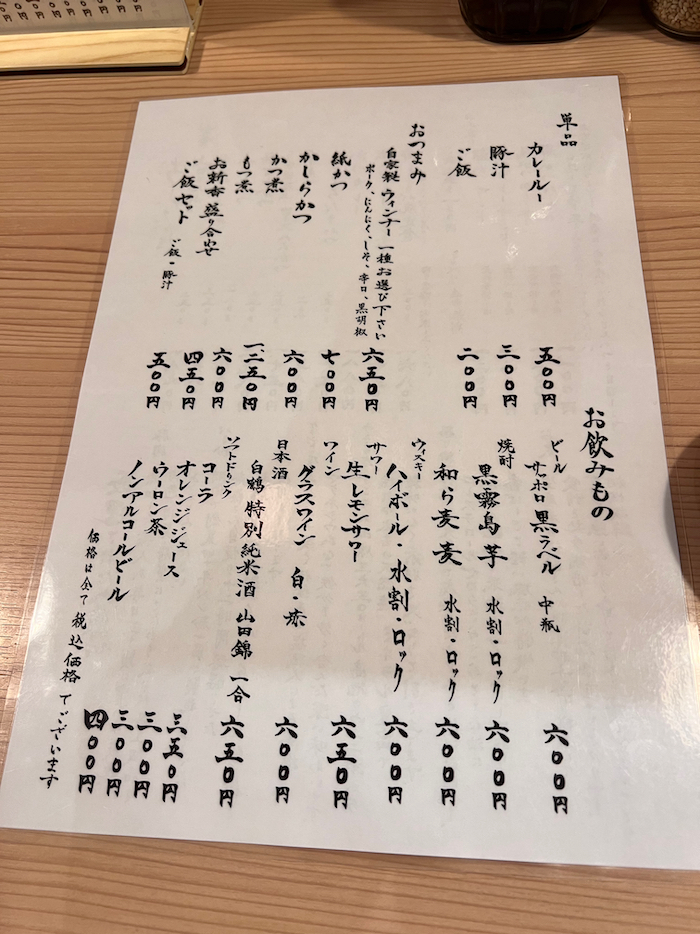 単品
カレールー 五〇〇円
豚汁 三〇〇円
ご飯 二〇〇円
おつまみ
自家製 ウィンナー 一種お選び下さい 六五〇円
ポーク、にんにく、しそ、辛口、黒胡椒
紙かつ 七〇〇円
かしらかつ 六〇〇円
かつ煮 一、二五〇円
もつ煮 六〇〇円
お新香 盛り合わせ 四五〇円
ご飯セット ご飯・豚汁 五〇〇円
お飲みもの
ビール
サッポロ 黒ラベル 中瓶 六〇〇円
焼酎
黒霧島 芋 水割・ロック 六〇〇円
和ら麦 麦 水割・ロック 六〇〇円
ウィスキー
ハイボール・水割・ロック 六〇〇円
サワー
生レモンサワー 六五〇円
ワイン
グラスワイン 白・赤 六〇〇円
日本酒
白鶴 特別純米酒 山田錦 一合 六五〇円
ソフトドリンク
コーラ 三五〇円
オレンジジュース 三〇〇円
ウーロン茶 三〇〇円
ノンアルコールビール 四〇〇円
価格は全て税込価格でございます